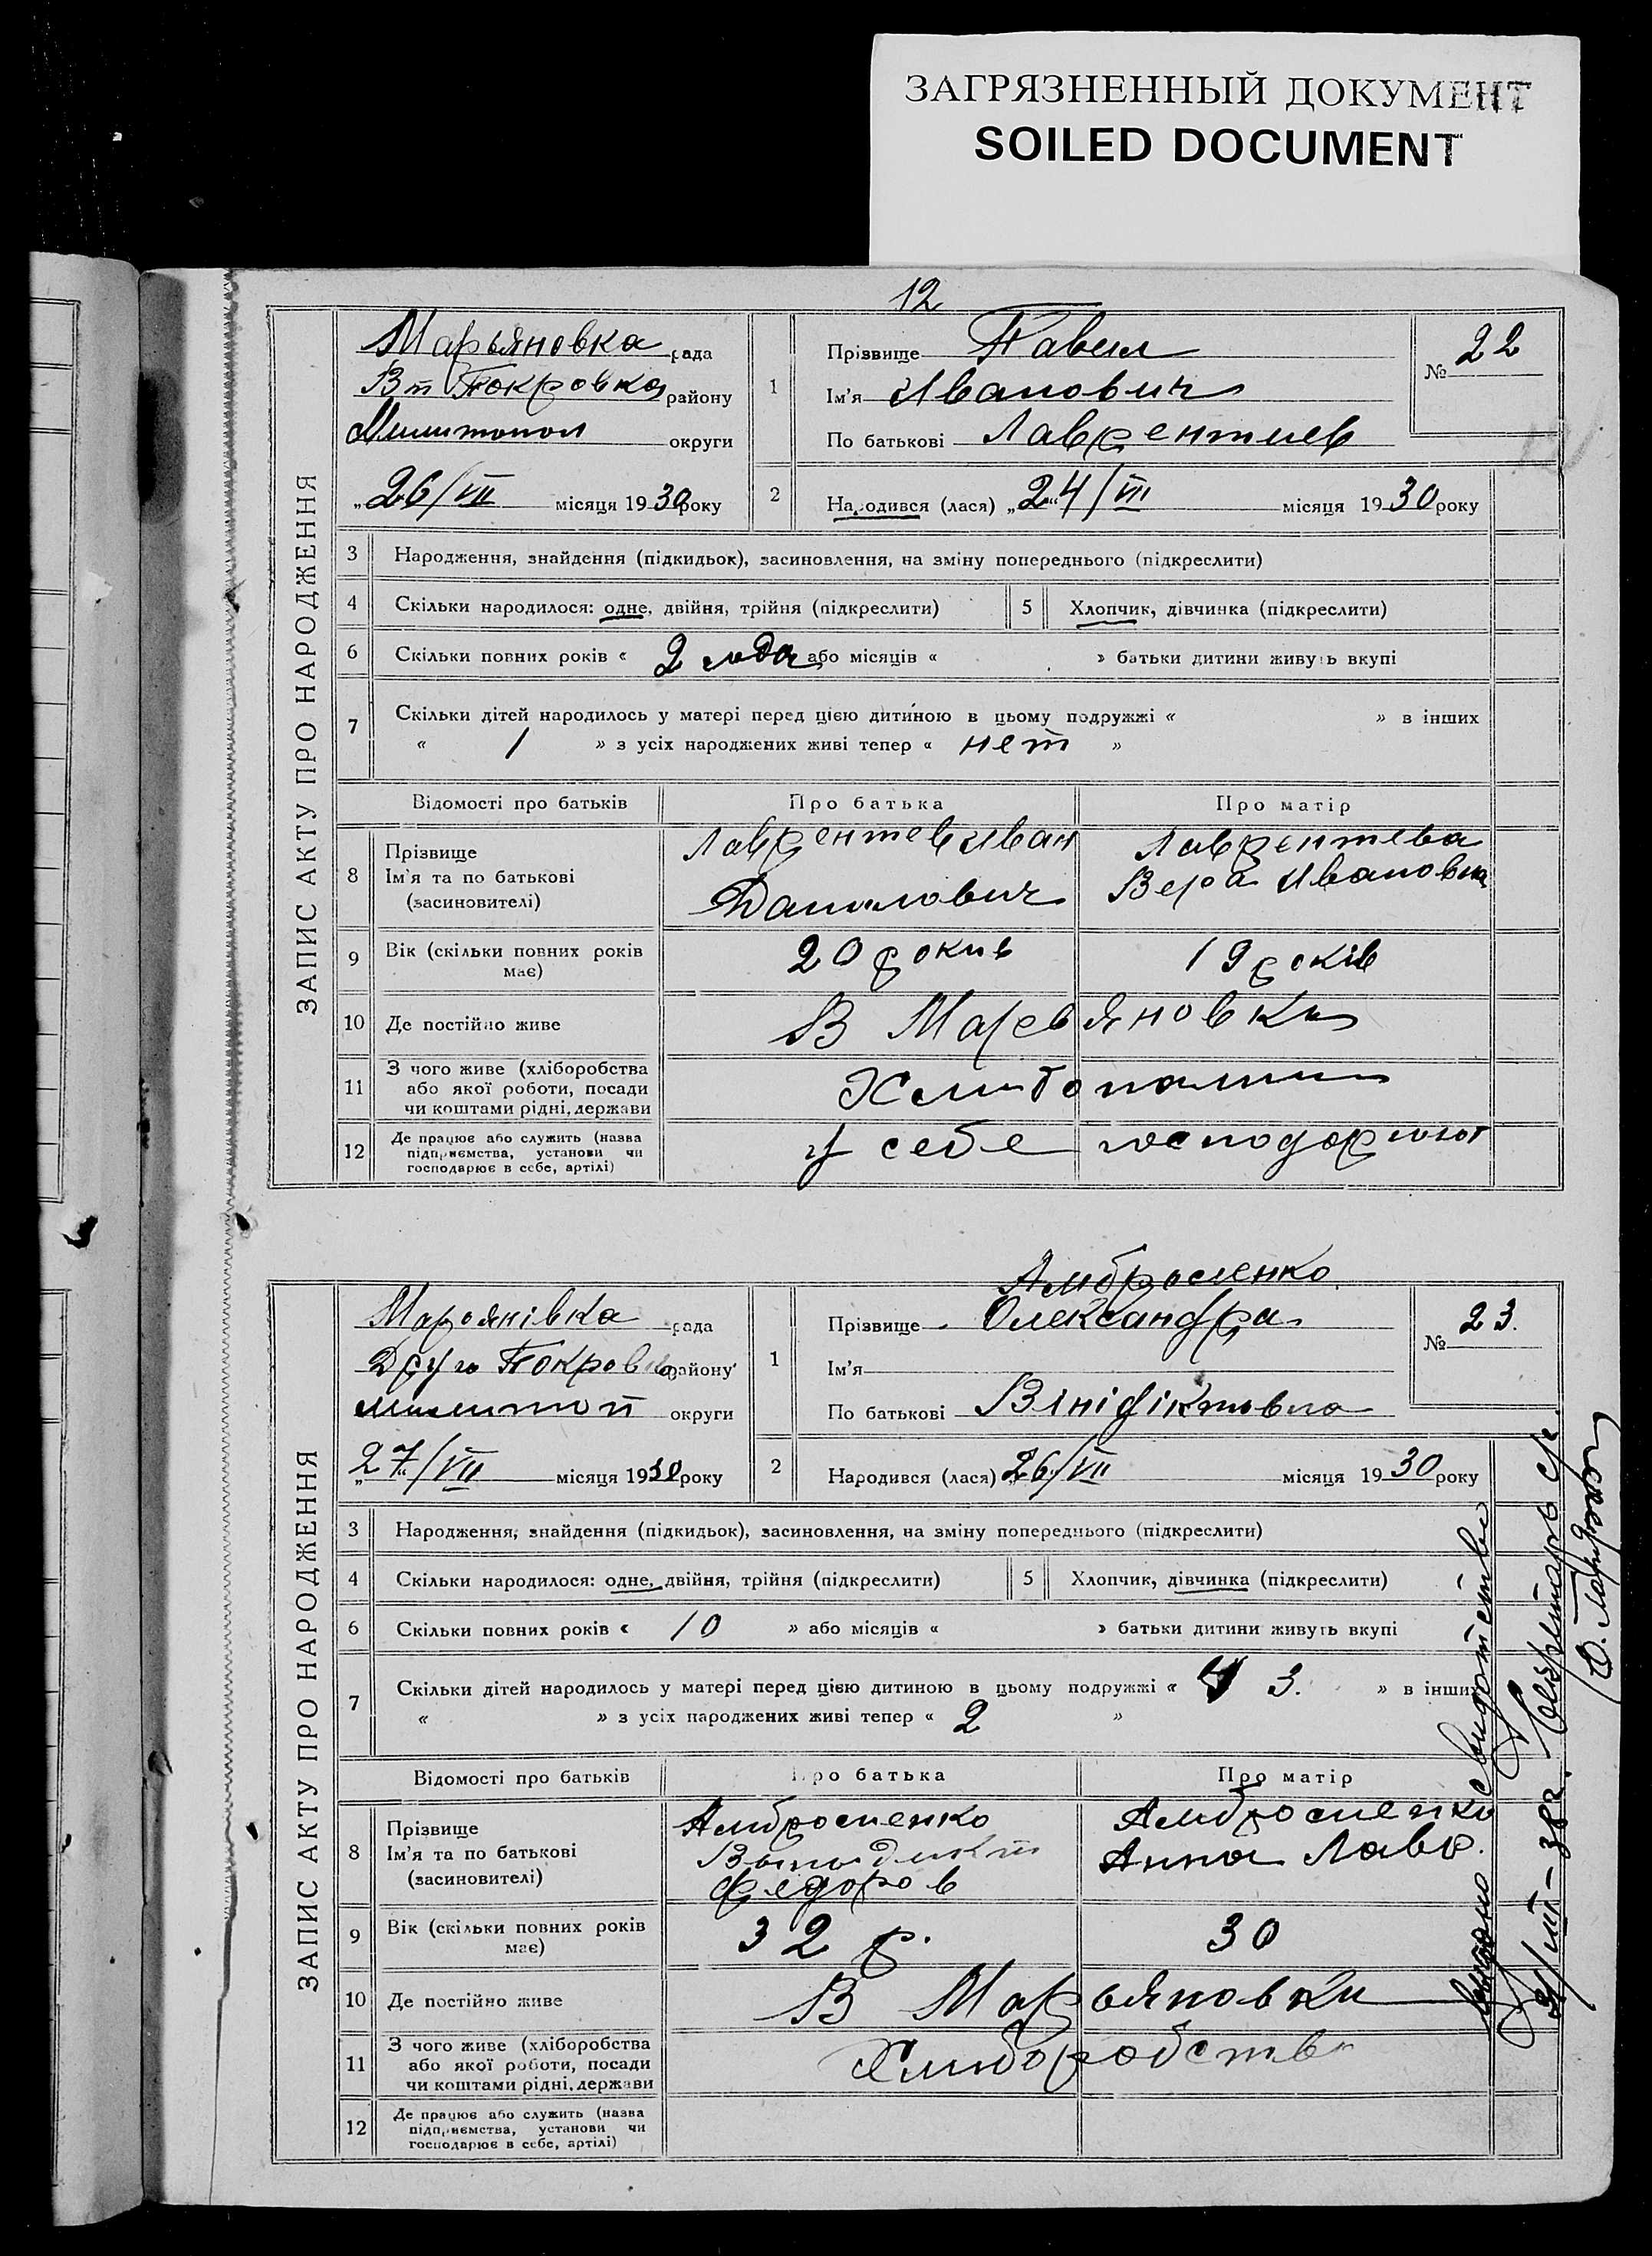 ЗАГРЯЗНЕННЫЙ ДОКУМЕНТ
SOILED DOCUMENT
12
ЗАПИС АКТУ ПРО НАРОДЖЕННЯ
Марьяновка рада
Вт Покровка району
Мелитопол округи
„26/VII місяця 1930 року
1
Прізвище Павел
Ім'я Иванович
По батькові Лаврентиев
№ 22
2
Народився (лася) „24/VII місяця 1930 року
3 Народження, знайдення (підкидьок), засиновлення, на зміну попереднього (підкреслити)
4 Скільки народилося: одне, двійня, трійня (підкреслити)
5 Хлопчик, дівчинка (підкреслити)
6 Скільки повних років « 2 года або місяців « » батьки дитини живуть вкупі
7 Скільки дітей народилось у матері перед цією дитиною в цьому подружжі « » в інших
« 1 » з усіх народжених живі тепер « нет »
Відомості про батьків Про батька Про матір
8 Прізвище
Ім'я та по батькові
(засиновителі)
Лаврентев Иван
Данилович
Лаврентева
Вера Ивановна
9 Вік (скільки повних років
має)
20 рокив
19 років
10 Де постійно живе
В Марьяновки
11 З чого живе (хліборобства
або якої роботи, посади
чи коштами рідні, держави
12 Де працює або служить (назва
підприємства, установи чи
господарює в себе, артілі)
у себе
ЗАПИС АКТУ ПРО НАРОДЖЕННЯ
Марьянівка рада
Друго Покровка району
округи
„27/VII місяця 1930 року
1
Амбросиенко
Прізвище Олександра
Ім'я
По батькові Вінідіктовна
№ 23.
2
Народився (лася) „26/VII місяця 1930 року
3 Народження, знайдення (підкидьок), засиновлення, на зміну попереднього (підкреслити)
4 Скільки народилося: одне, двійня, трійня (підкреслити)
5 Хлопчик, дівчинка (підкреслити)
6 Скільки повних років « 10 » або місяців « » батьки дитини живуть вкупі
7 Скільки дітей народилось у матері перед цією дитиною в цьому подружжі « 3. » в інших
« » з усіх народжених живі тепер « 2 »
Відомості про батьків Про батька Про матір
8 Прізвище
Ім'я та по батькові
(засиновителі)
Амбросиенко
Федоров
Амбросиенко
Анна Лавр.
9 Вік (скільки повних років
має)
32 р.
30
10 Де постійно живе
В Марьяновки
11 З чого живе (хліборобства
або якої роботи, посади
чи коштами рідні, держави
Хлиборобство
12 Де працює або служить (назва
підприємства, установи чи
господарює в себе, артілі)